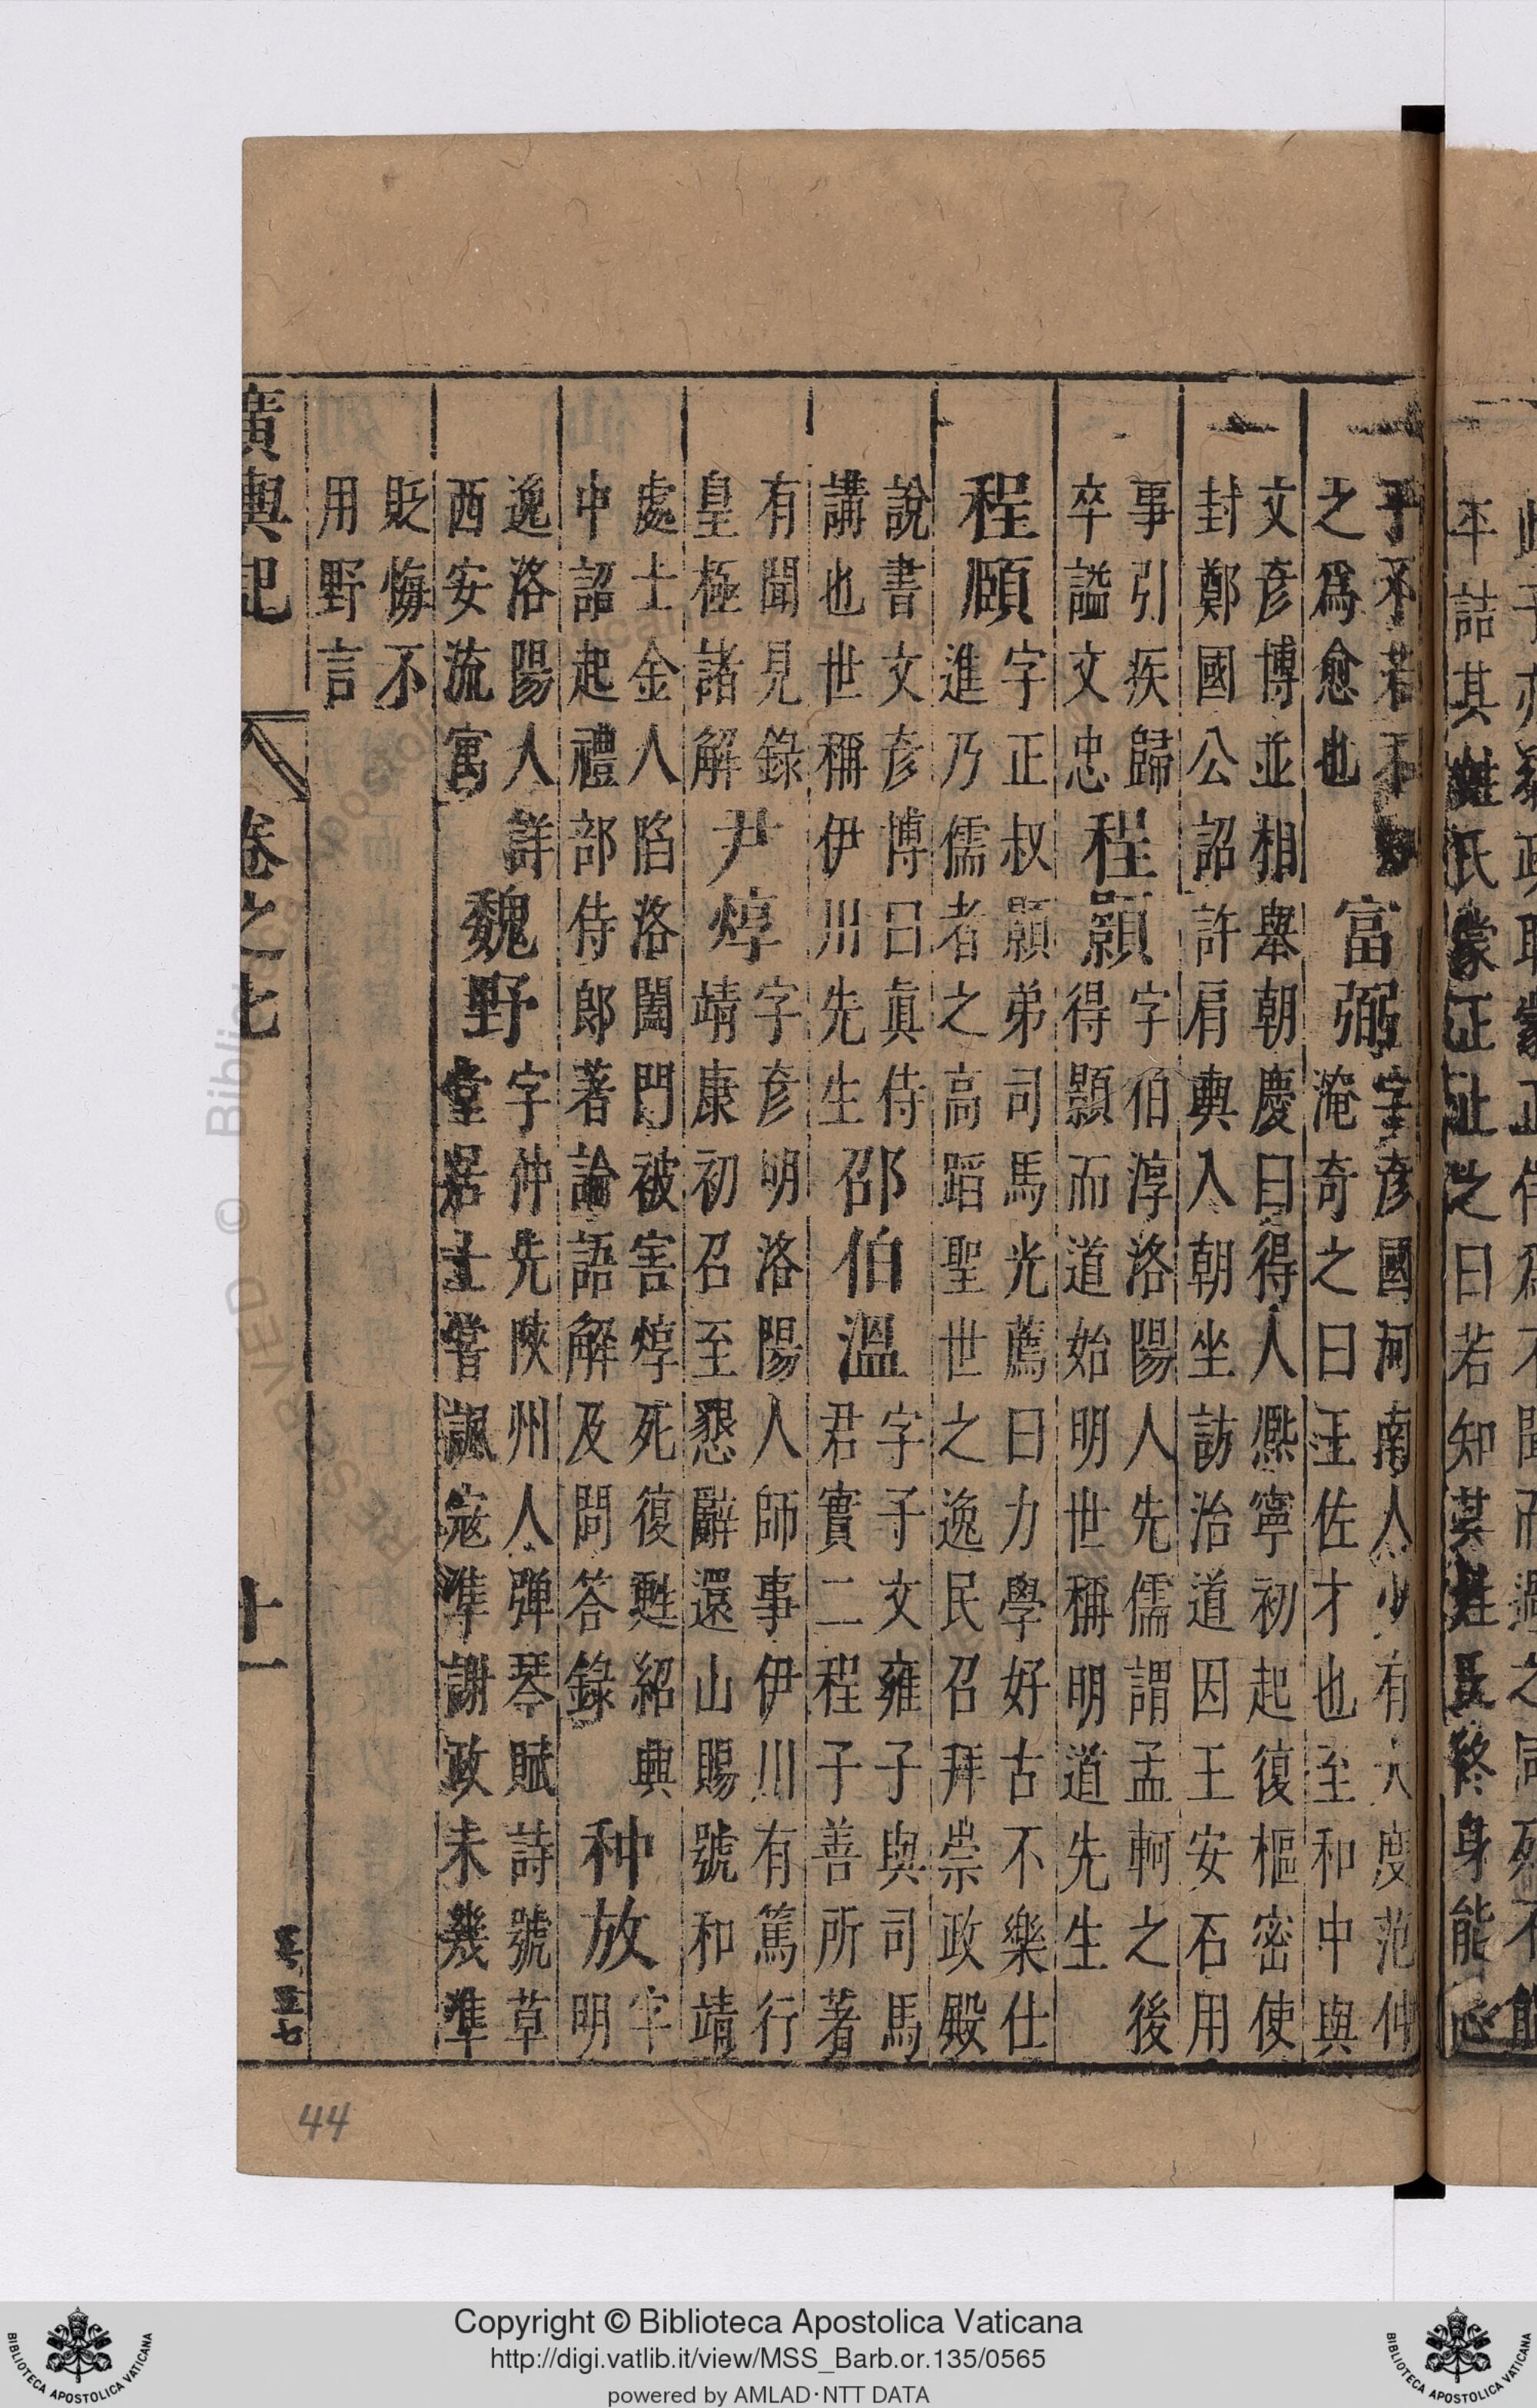 平詰其姓氏蒙正止之曰若知其姓氏終身能忘
乎不若不知
之爲愈也
富弼
字彥國河南人少有大度范仲
淹奇之曰王佐才也至和中與
文彥博並相舉朝慶曰得人熈寧初起復樞密使
封鄭國公詔許肩輿入朝坐訪治道因王安石用
事引疾歸
卒謚文忠
程顥
字伯淳洛陽人先儒謂孟軻之後
得顥而道始明世稱明道先生
程頤
字正叔顥弟司馬光薦曰力學好古不樂仕
進乃儒者之高蹈聖世之逸民召拜崇政殿
說書文彥博曰眞侍
講也世稱伊川先生
邵伯溫
字子文雍子與司馬
君實二程子善所著
有聞見錄
皇極諸解
尹焞
字彥明洛陽人師事伊川有篤行
靖康初召至懇辭還山賜號和靖
處士金人陷洛闔門被害焞死復甦紹興
中詔起禮部侍郎著論語解及問答錄
种放
字明
逸洛陽人詳
西安流寓
魏野
字仲先陝州人彈琴賦詩號草
堂居士嘗諷寇準謝政未幾準
貶悔不
用野言
廣輿記 卷之七 十一
44
Copyright © Biblioteca Apostolica Vaticana
http://digi.vatlib.it/view/MSS_Barb.or.135/0565
powered by AMLAD·NTT DATA
BIBLIOTECA APOSTOLICA VATICANA
BIBLIOTECA APOSTOLICA VATICANA